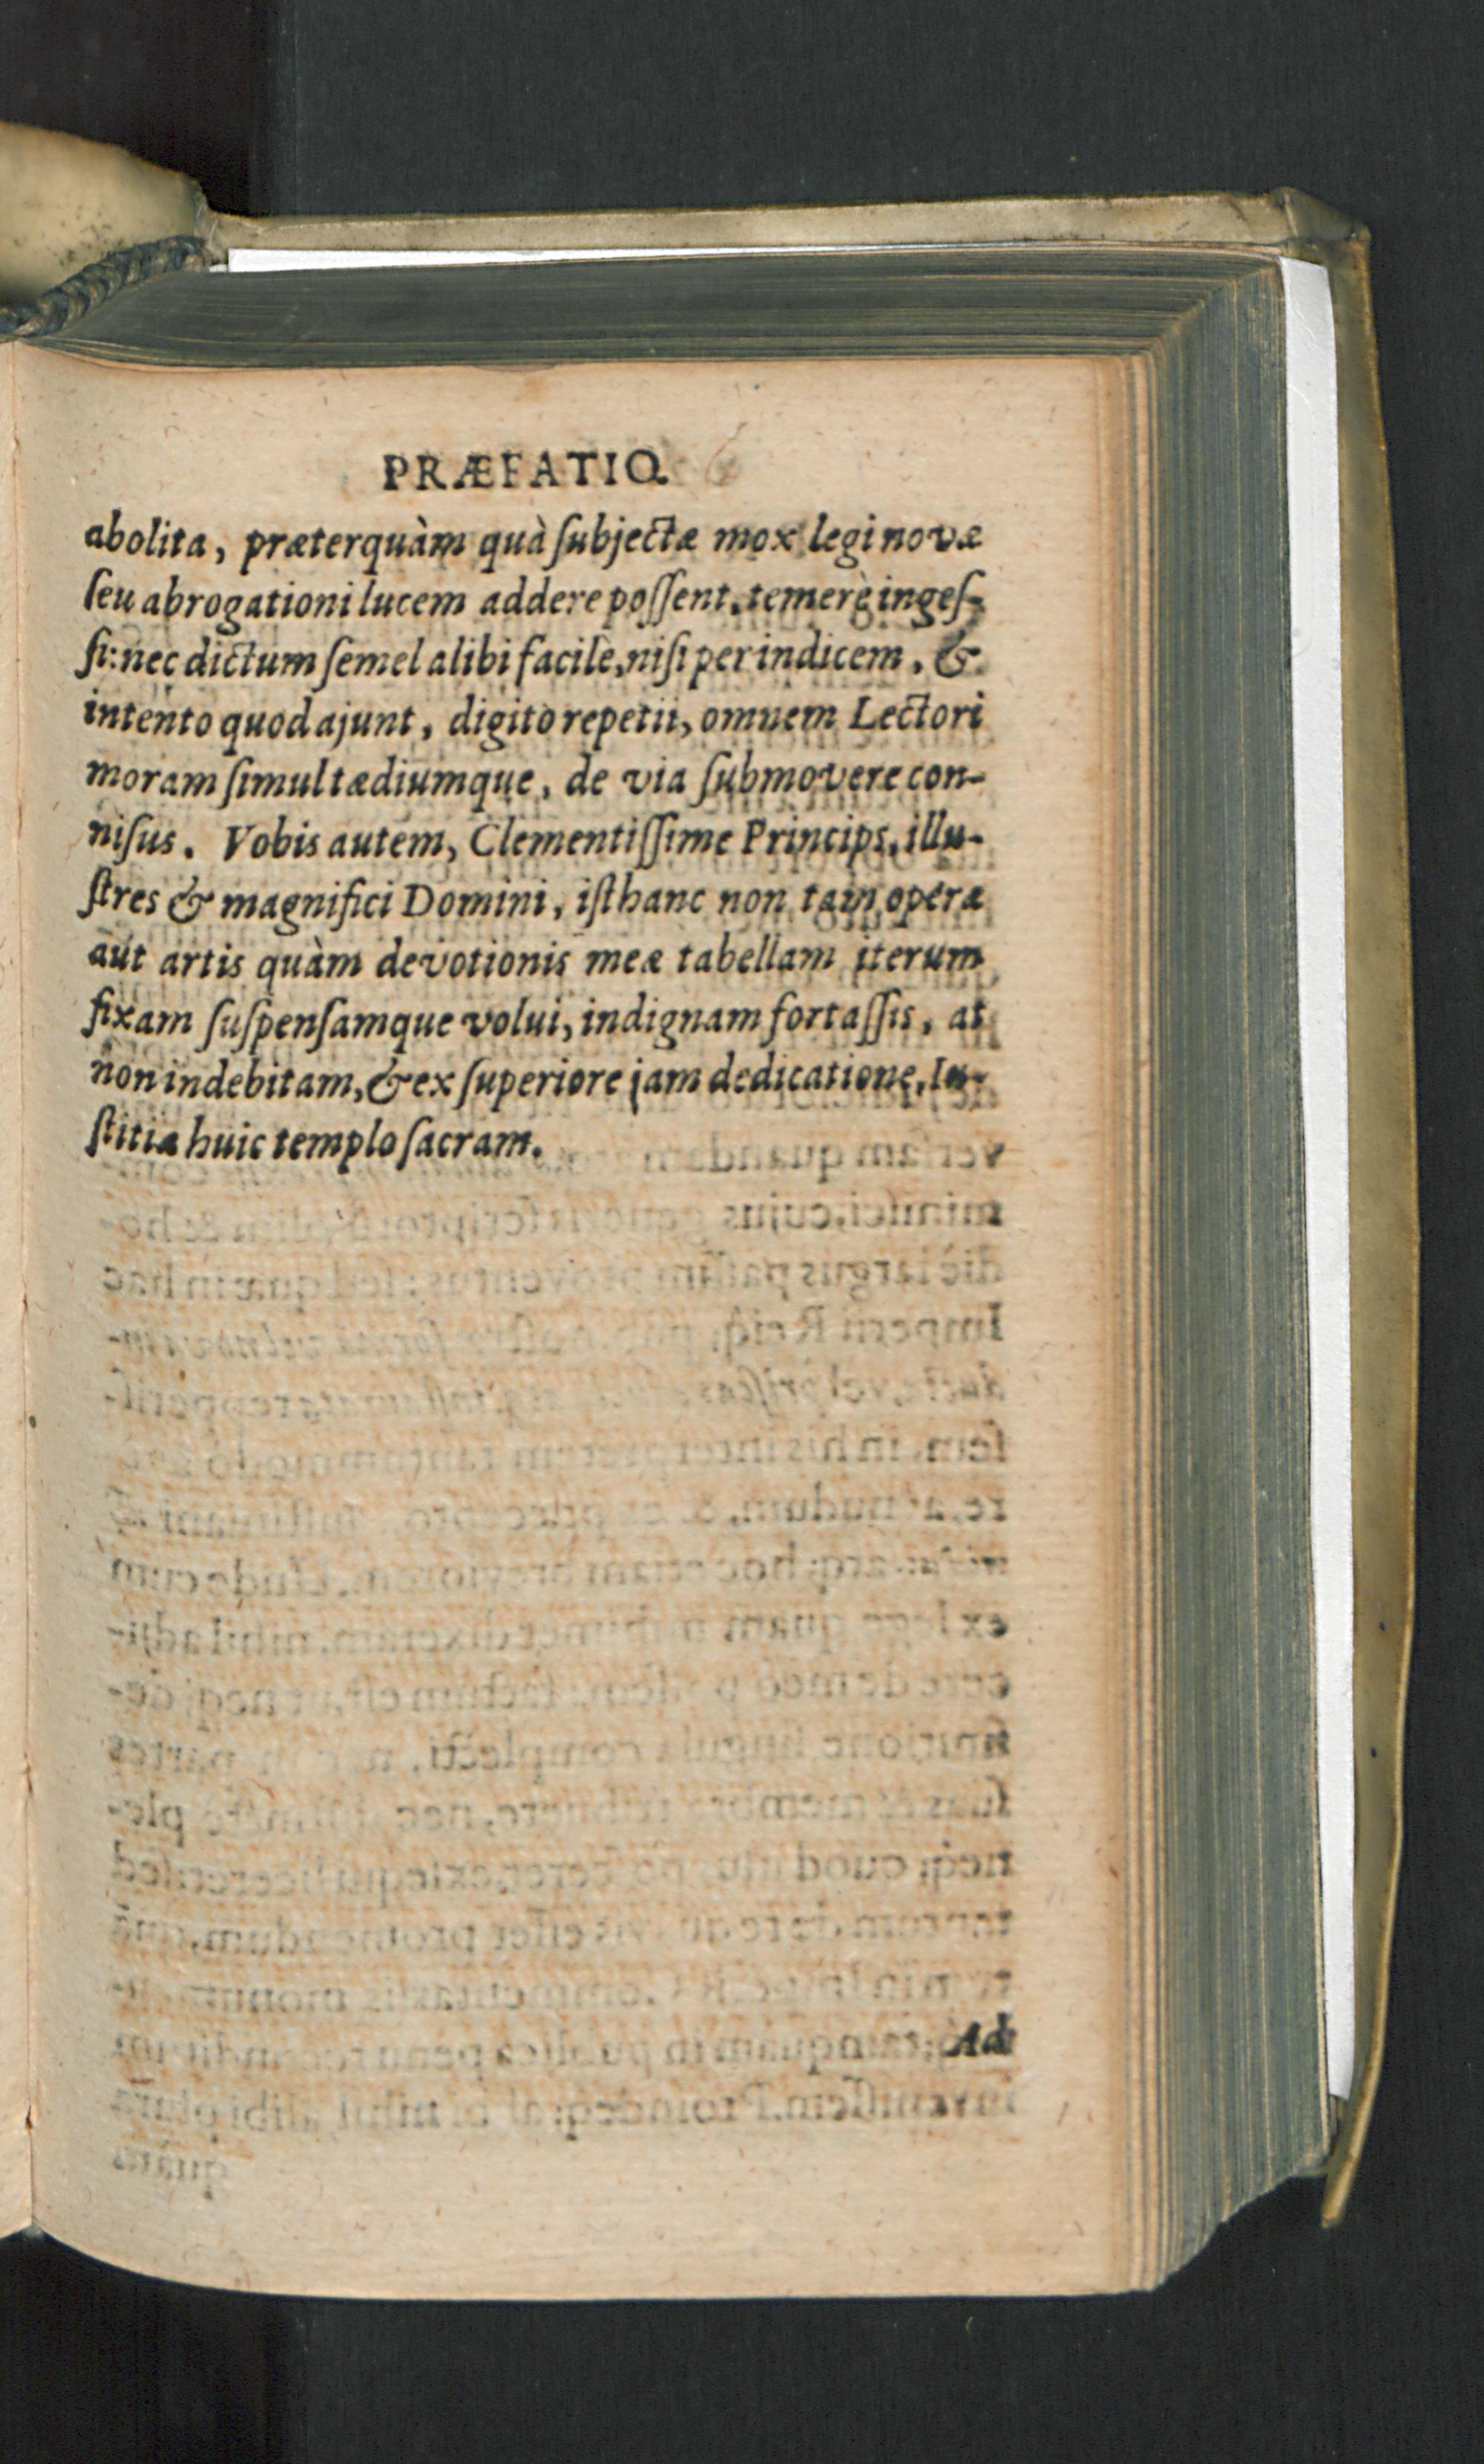 PRÆFATIO.
abolita, præterquàm quà ſubjectæ mox legi novæ
ſeu abrogationi lucem addere poſſent, temerè ingeſ-
ſi: nec dictum ſemel alibi facilè, niſi per indicem, &
intento quod ajunt, digito repetii, omnem Lectori
moram ſimul tædiumque, de via ſubmovere con-
niſus. Vobis autem, Clementiſſime Princips, illu-
ſtres & magnifici Domini, iſthanc non tam operæ
aut artis quàm devotionis meæ tabellam iterum
fixam ſuſpenſamque volui, indignam fortaſſis, at
non indebitam, & ex ſuperiore jam dedicatione, Iu-
ſtitiæ huic templo ſacram.
Ad